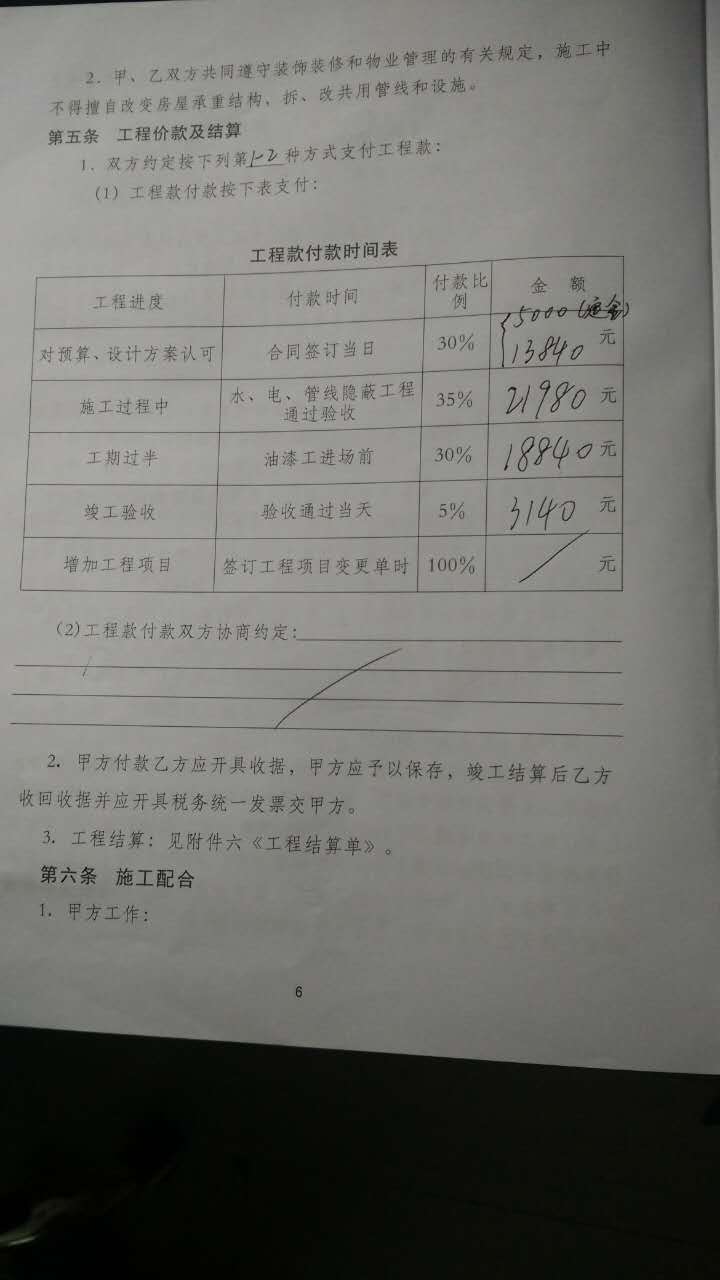 2. 甲、乙双方共同遵守装饰装修和物业管理的有关规定，施工中
不得擅自改变房屋承重结构，拆、改共用管线和设施。
第五条 工程价款及结算
1. 双方约定按下列第1-2种方式支付工程款：
(1) 工程款付款按下表支付：
工程款付款时间表
工程进度 付款时间 付款比例 金 额
对预算、设计方案认可 合同签订当日 30% 5000（定金） 13840 元
施工过程中 水、电、管线隐蔽工程通过验收 35% 21980 元
工期过半 油漆工进场前 30% 18840 元
竣工验收 验收通过当天 5% 3140 元
增加工程项目 签订工程项目变更单时 100% 元
(2) 工程款付款双方协商约定：
2. 甲方付款乙方应开具收据，甲方应予以保存，竣工结算后乙方
收回收据并应开具税务统一发票交甲方。
3. 工程结算：见附件六《工程结算单》。
第六条 施工配合
1. 甲方工作：
6